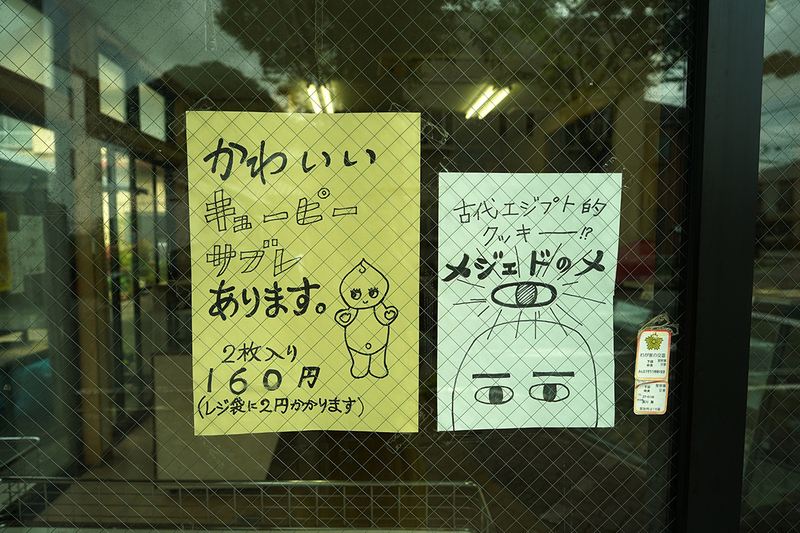 かわいい
キューピー
サブレ
あります。
2枚入り
160円
(レジ袋に2円かかります)
古代エジプト的
クッキー!?
メジェドのメ